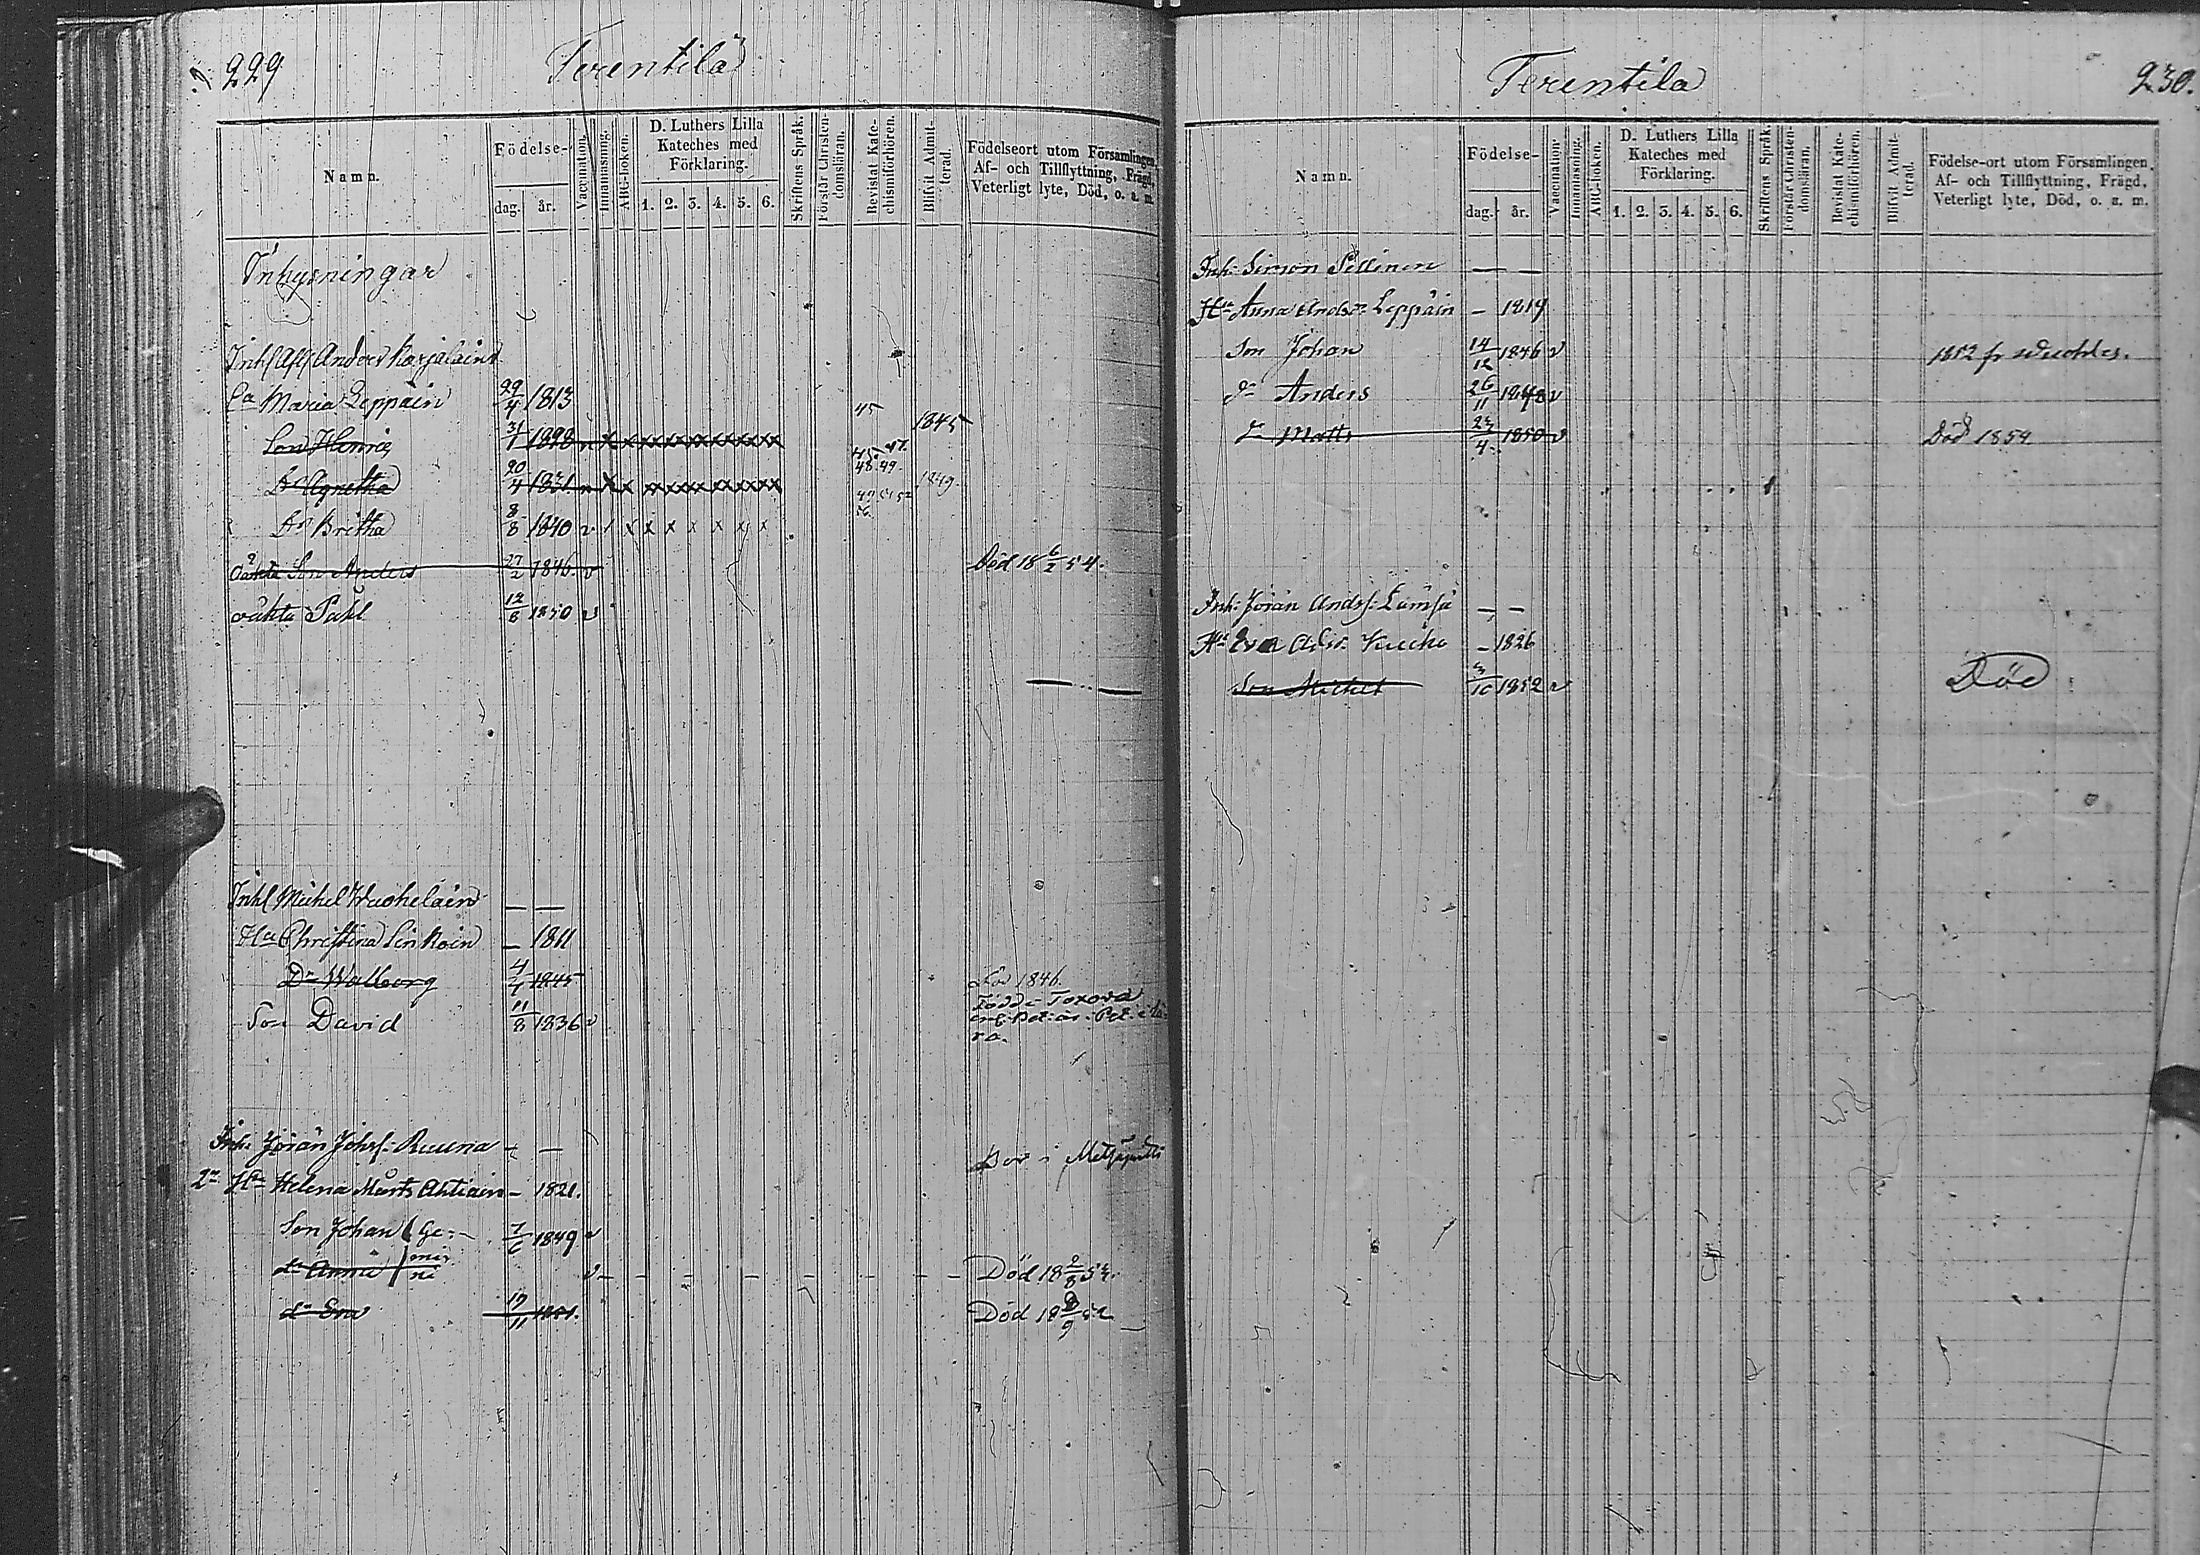 229 Terentila
Namn. Födelse- dag. år. Vaccination. Innanläsning. ABC-boken. D. Luthers Lilla Kateches med Förklaring. 1. 2. 3. 4. 5. 6. Skriftens Språk. Förstår Christendomsläran. Bevistat Katechismiförhören. Blifvit Admitterad. Födelseort utom Församlingen, Af- och Tillflyttning, Frägd, Veterligt lyte, Död, o. a. m.
Inhysningar
Inhs Afl Anders Karjalain
Ea Maria Leppäin 29/4 1813 45
Son Henric 31/1 1828 v x x x x x x x x 45 47. 1845
Dr Agnetha 20/4 1831 v x x x x x x x x 48. 49. 1849
Dr Britha 8/8 1840 v / x x x x x x x 49 51 52 56
oäkta Son Anders 27/2 1846. v Död 18 6/2 54.
oäkta Påhl 12/8 1850 v
Inhs Michel Wuohelain — —
Hu Christina Sinkoin — 1811
Dr Walborg 4/1 1845 Död 1846.
Son David 11/8 1836 v Född i Toxova
Inh: Jöran Johss: Ruuna — — Bor i Metsäpirtti
2n Hu Helena Mårts Ahtiain — 1821.
Son Johan Ge- 7/6 1849 v
dr Anna mi ni v — — — — Död 18 2/8 54.
dr Eva 19/11 1851. Död 18 /9 52
Terentila 230.
Namn. Födelse- dag. år. Vaccination. Innanläsning. ABC-boken. D. Luthers Lilla Kateches med Förklaring. 1. 2. 3. 4. 5. 6. Skriftens Språk. Förstår Christendomsläran. Bevistat Katechismiförhören. Blifvit Admitterad. Födelse-ort utom Församlingen, Af- och Tillflyttning, Frägd, Veterligt lyte, Död, o. a. m.
Inh: Simon Pellinen — —
Hu Anna Andsdr Leppäin — 1819
Son Johan 14/12 1846 v 1852 fr
dn Anders 26/11 1848 v
dn Matts 23/4 1850 v Död 1854
Inh: Jöran Andrs: Lämsä — —
Hu Eva — 1826
Son Michel 3/10 1852 v Död